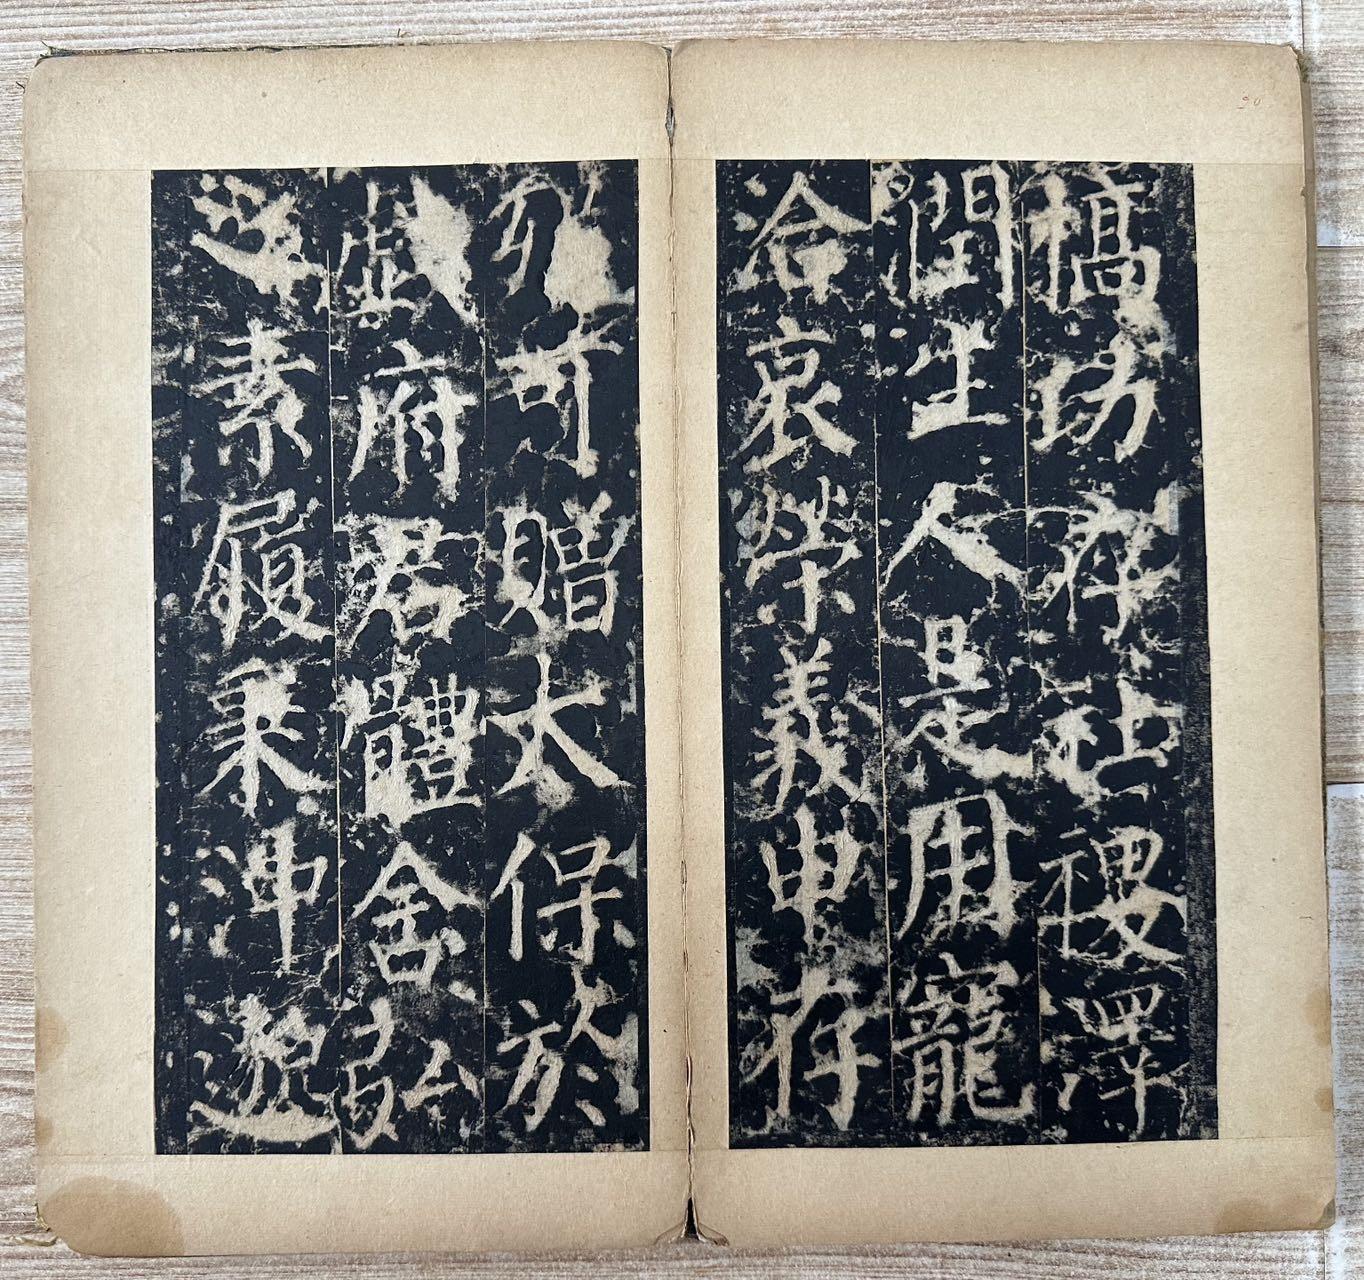 功存社稷澤
潤生人是用寵
洽哀榮義申存
歿可贈太保於
戲府君體含弘
之素履秉沖邈